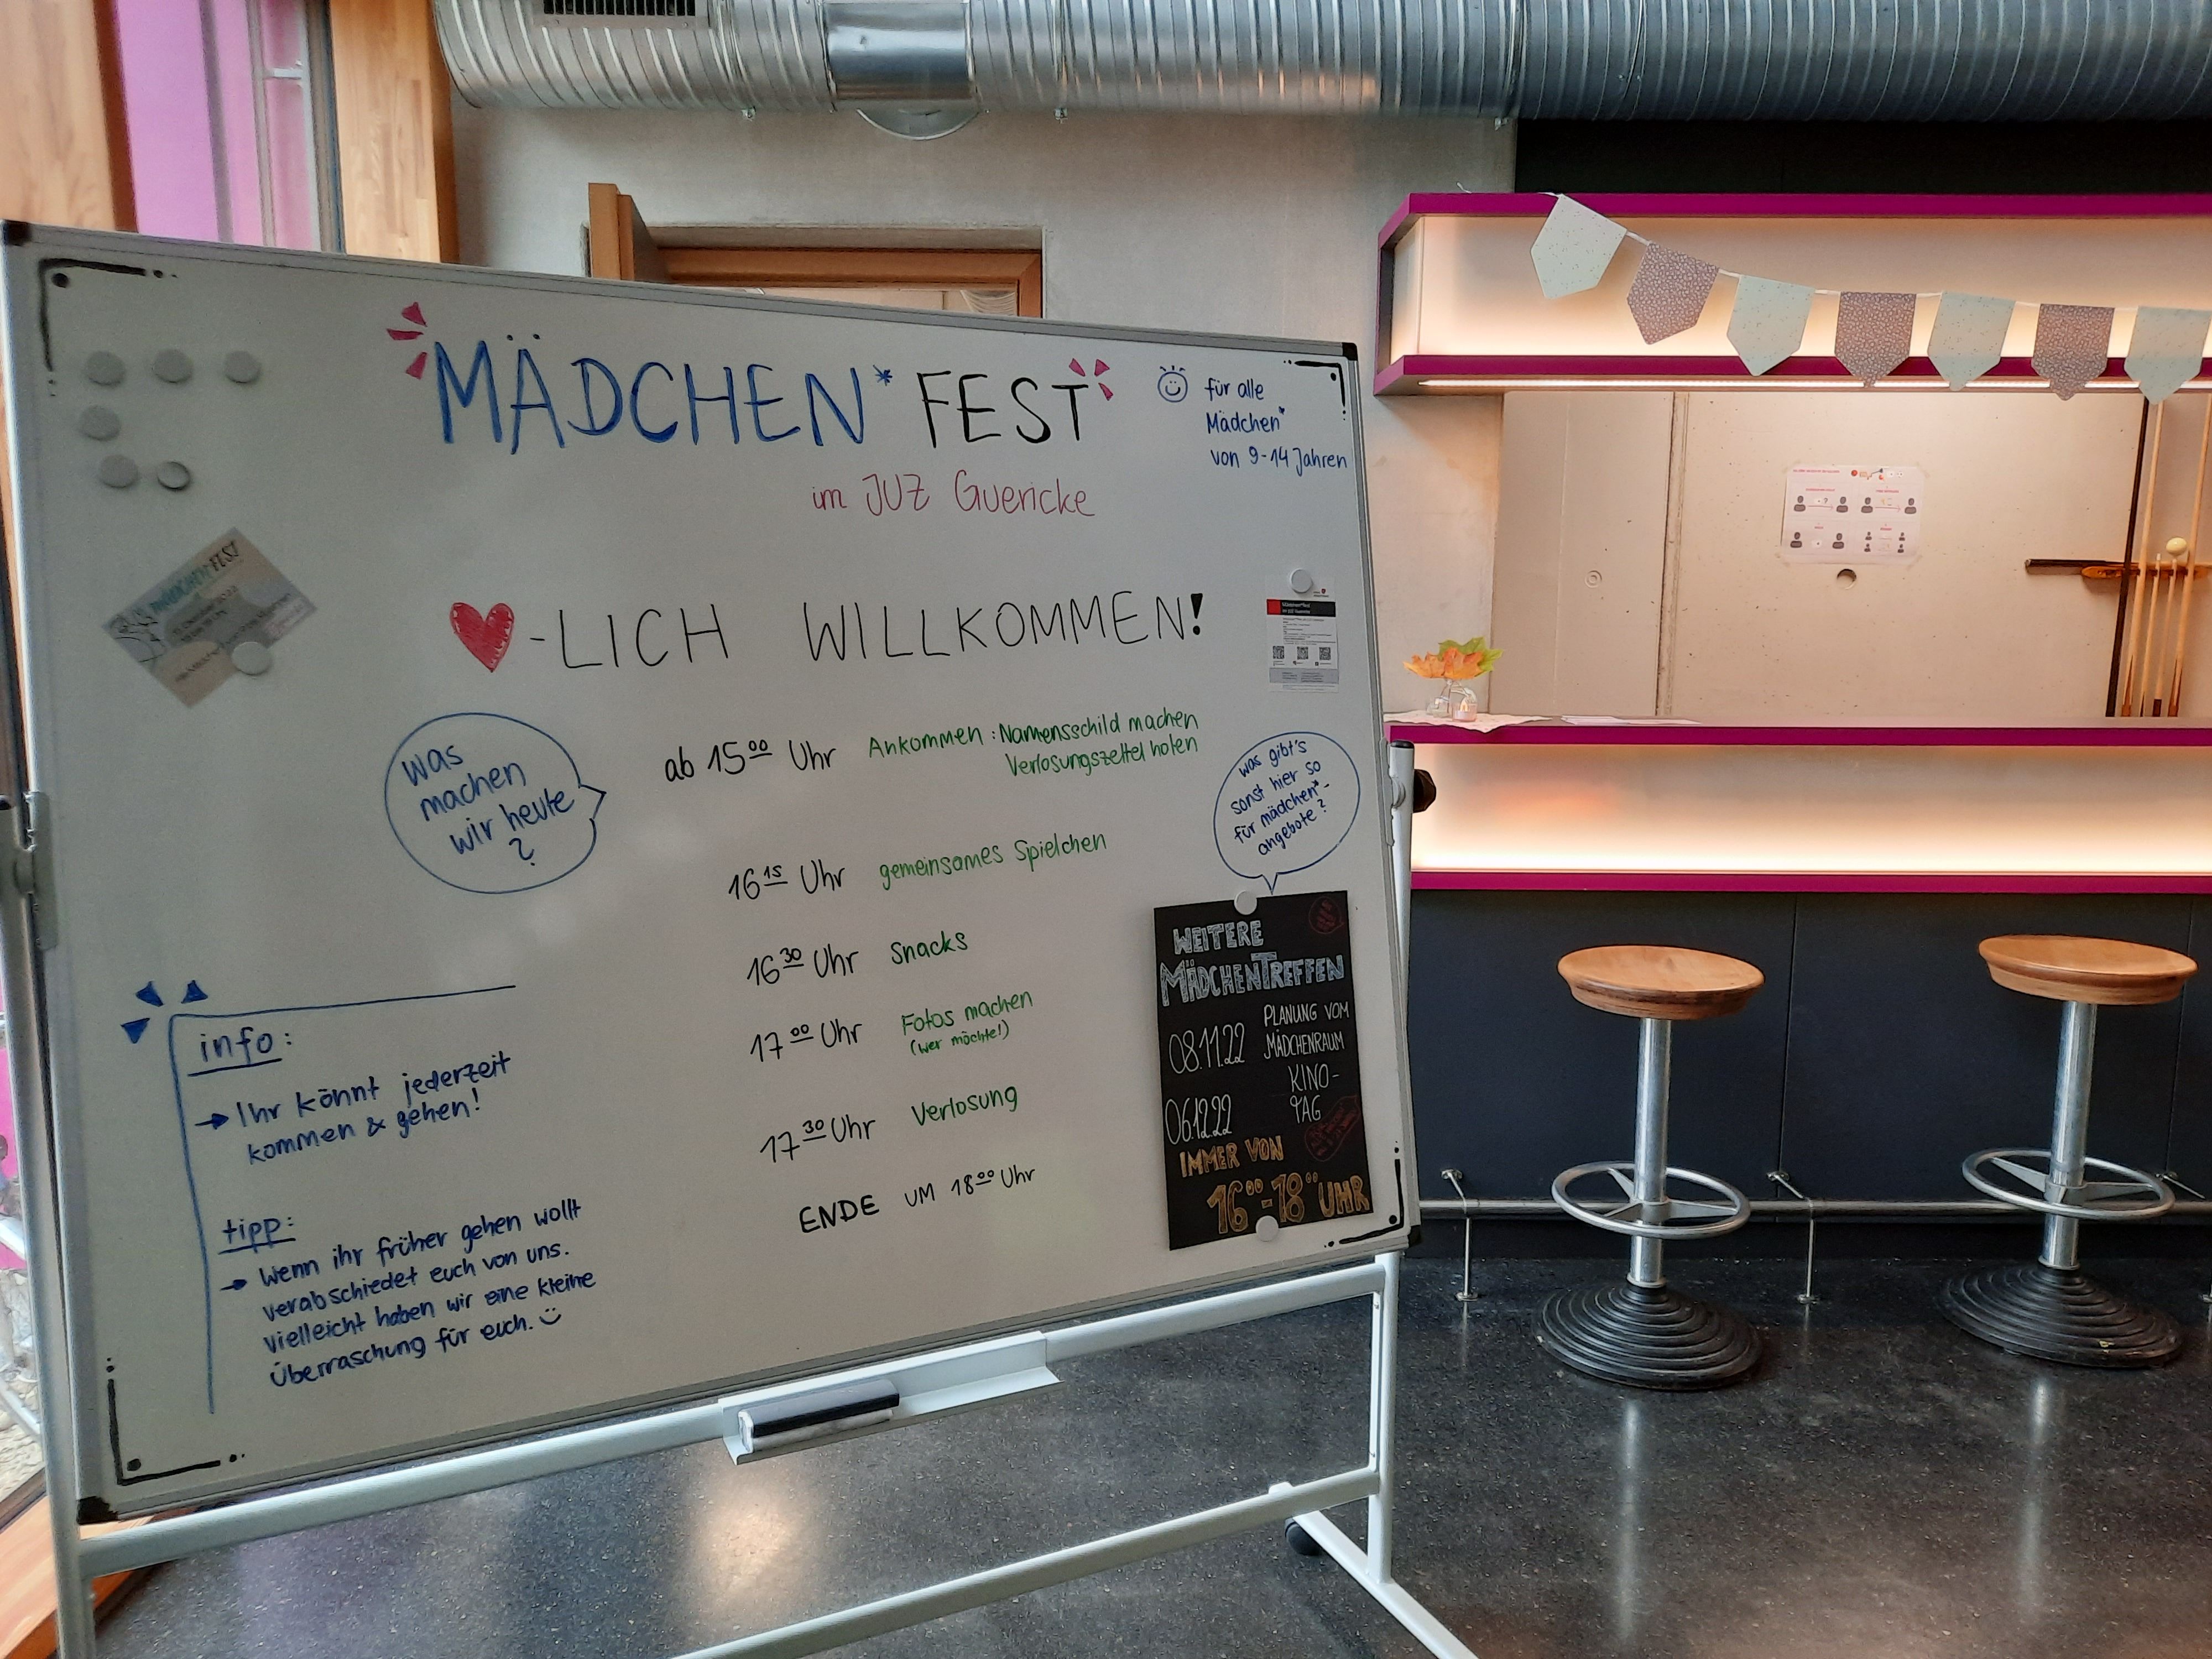 MÄDCHEN* FEST
im JUZ Guericke
für alle
Mädchen*
von 9-14 Jahren
MÄDCHEN*FEST
-LICH WILLKOMMEN!
was
machen
wir heute
?
ab 15⁰⁰ Uhr Ankommen: Namensschild machen
Verlosungszettel holen
16¹⁵ Uhr gemeinsames Spielchen
16³⁰ Uhr Snacks
17⁰⁰ Uhr Fotos machen
(wer möchte!)
17³⁰ Uhr Verlosung
ENDE UM 18⁰⁰ Uhr
was gibt's
sonst hier so
für mädchen*-
angebote?
WEITERE
MÄDCHENTREFFEN
08.11.22 PLANUNG VOM
MÄDCHENRAUM
06.12.22 KINO-
TAG
IMMER VON
16⁰⁰-18⁰⁰ UHR
info:
→ Ihr könnt jederzeit
kommen & gehen!
tipp:
→ Wenn ihr früher gehen wollt
verabschiedet euch von uns.
vielleicht haben wir eine kleine
Überraschung für euch. ☺